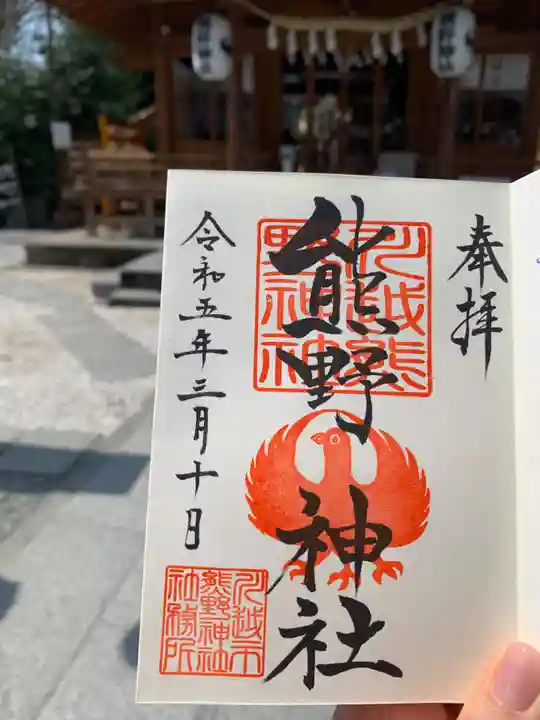 奉拝
熊野神社
川越熊野神社
令和五年三月十日
川越市
熊野神社
社務所